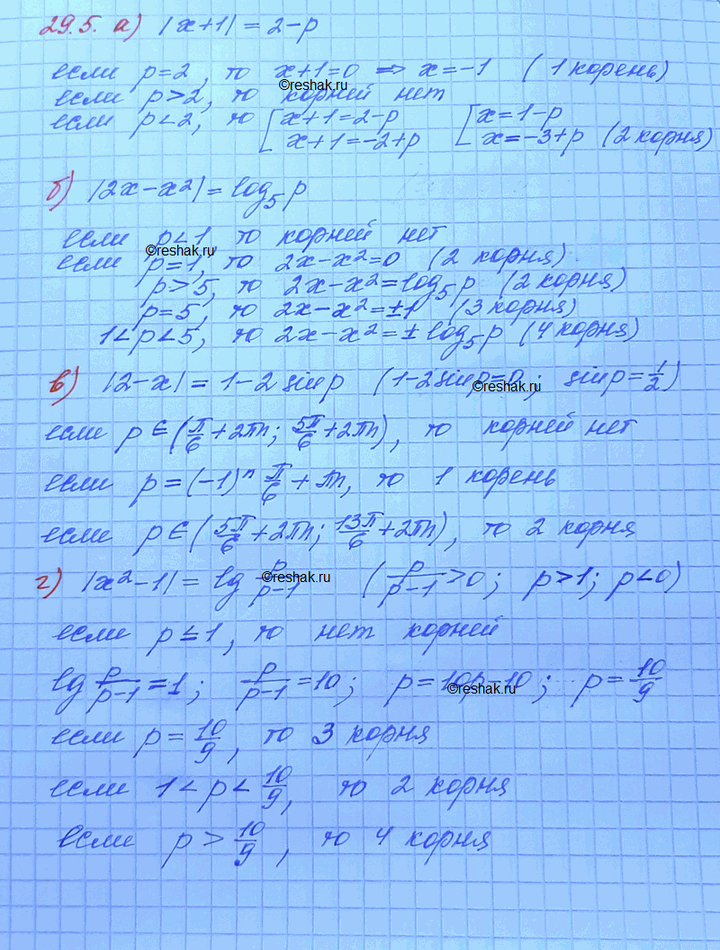 29.5. а) |x+1| = 2-p
если p=2, то x+1=0 => x=-1 (1 корень)
©reshak.ru
если p>2, то корней нет
если p<2, то [x+1=2-p [x=1-p
x+1=-2+p x=-3+p (2 корня)
б) |2x-x²| = log₅p
если p<1, то корней нет
©reshak.ru
если p=1, то 2x-x²=0 (2 корня)
p>5, то 2x-x²=log₅p (2 корня)
p=5, то 2x-x²=±1 (3 корня)
1<p<5, то 2x-x²=±log₅p (4 корня)
в) |2-x| = 1-2sinp (1-2sinp=0; sinp=1/2)
©reshak.ru
если p∈(π/6+2πn; 5π/6+2πn), то корней нет
если p=(-1)ⁿ π/6+πn, то 1 корень
если p∈(5π/6+2πn; 13π/6+2πn), то 2 корня
г) |x²-1| = lg p/p-1 (p/p-1>0; p>1; p<0)
©reshak.ru
если p≤1, то нет корней
lg p/p-1=1; p/p-1=10; p=10p-10; p=10/9
©reshak.ru
если p=10/9, то 3 корня
если 1<p<10/9, то 2 корня
если p>10/9, то 4 корня